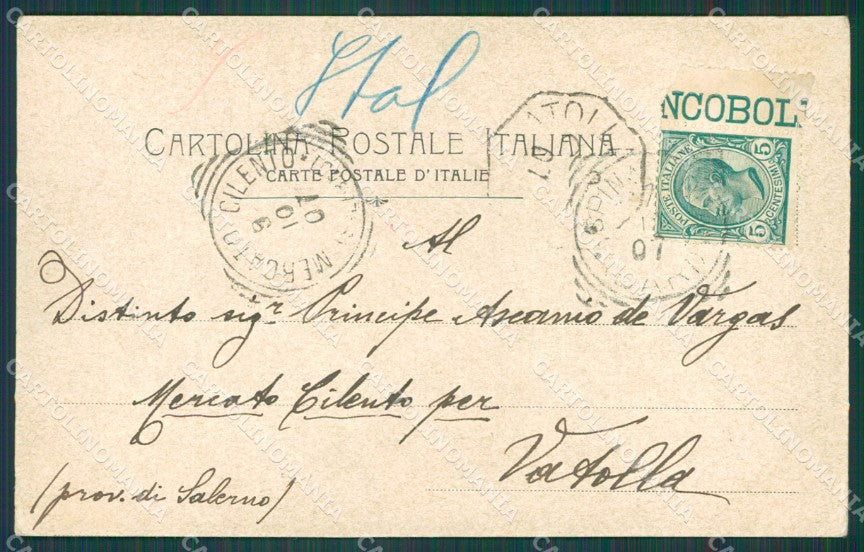 Ital
NCOBOL
CARTOLINA POSTALE ITALIANA
CARTE POSTALE D'ITALIE
POSTE ITALIANE
5 CENTESIMI 5
MERCATO CILENTO
07
10
6
07
Al
Distinto sigr. Principe Ascanio de Vargas
Mercato Cilento per
Vatolla
(prov. di Salerno)
CARTOLINOMANIA